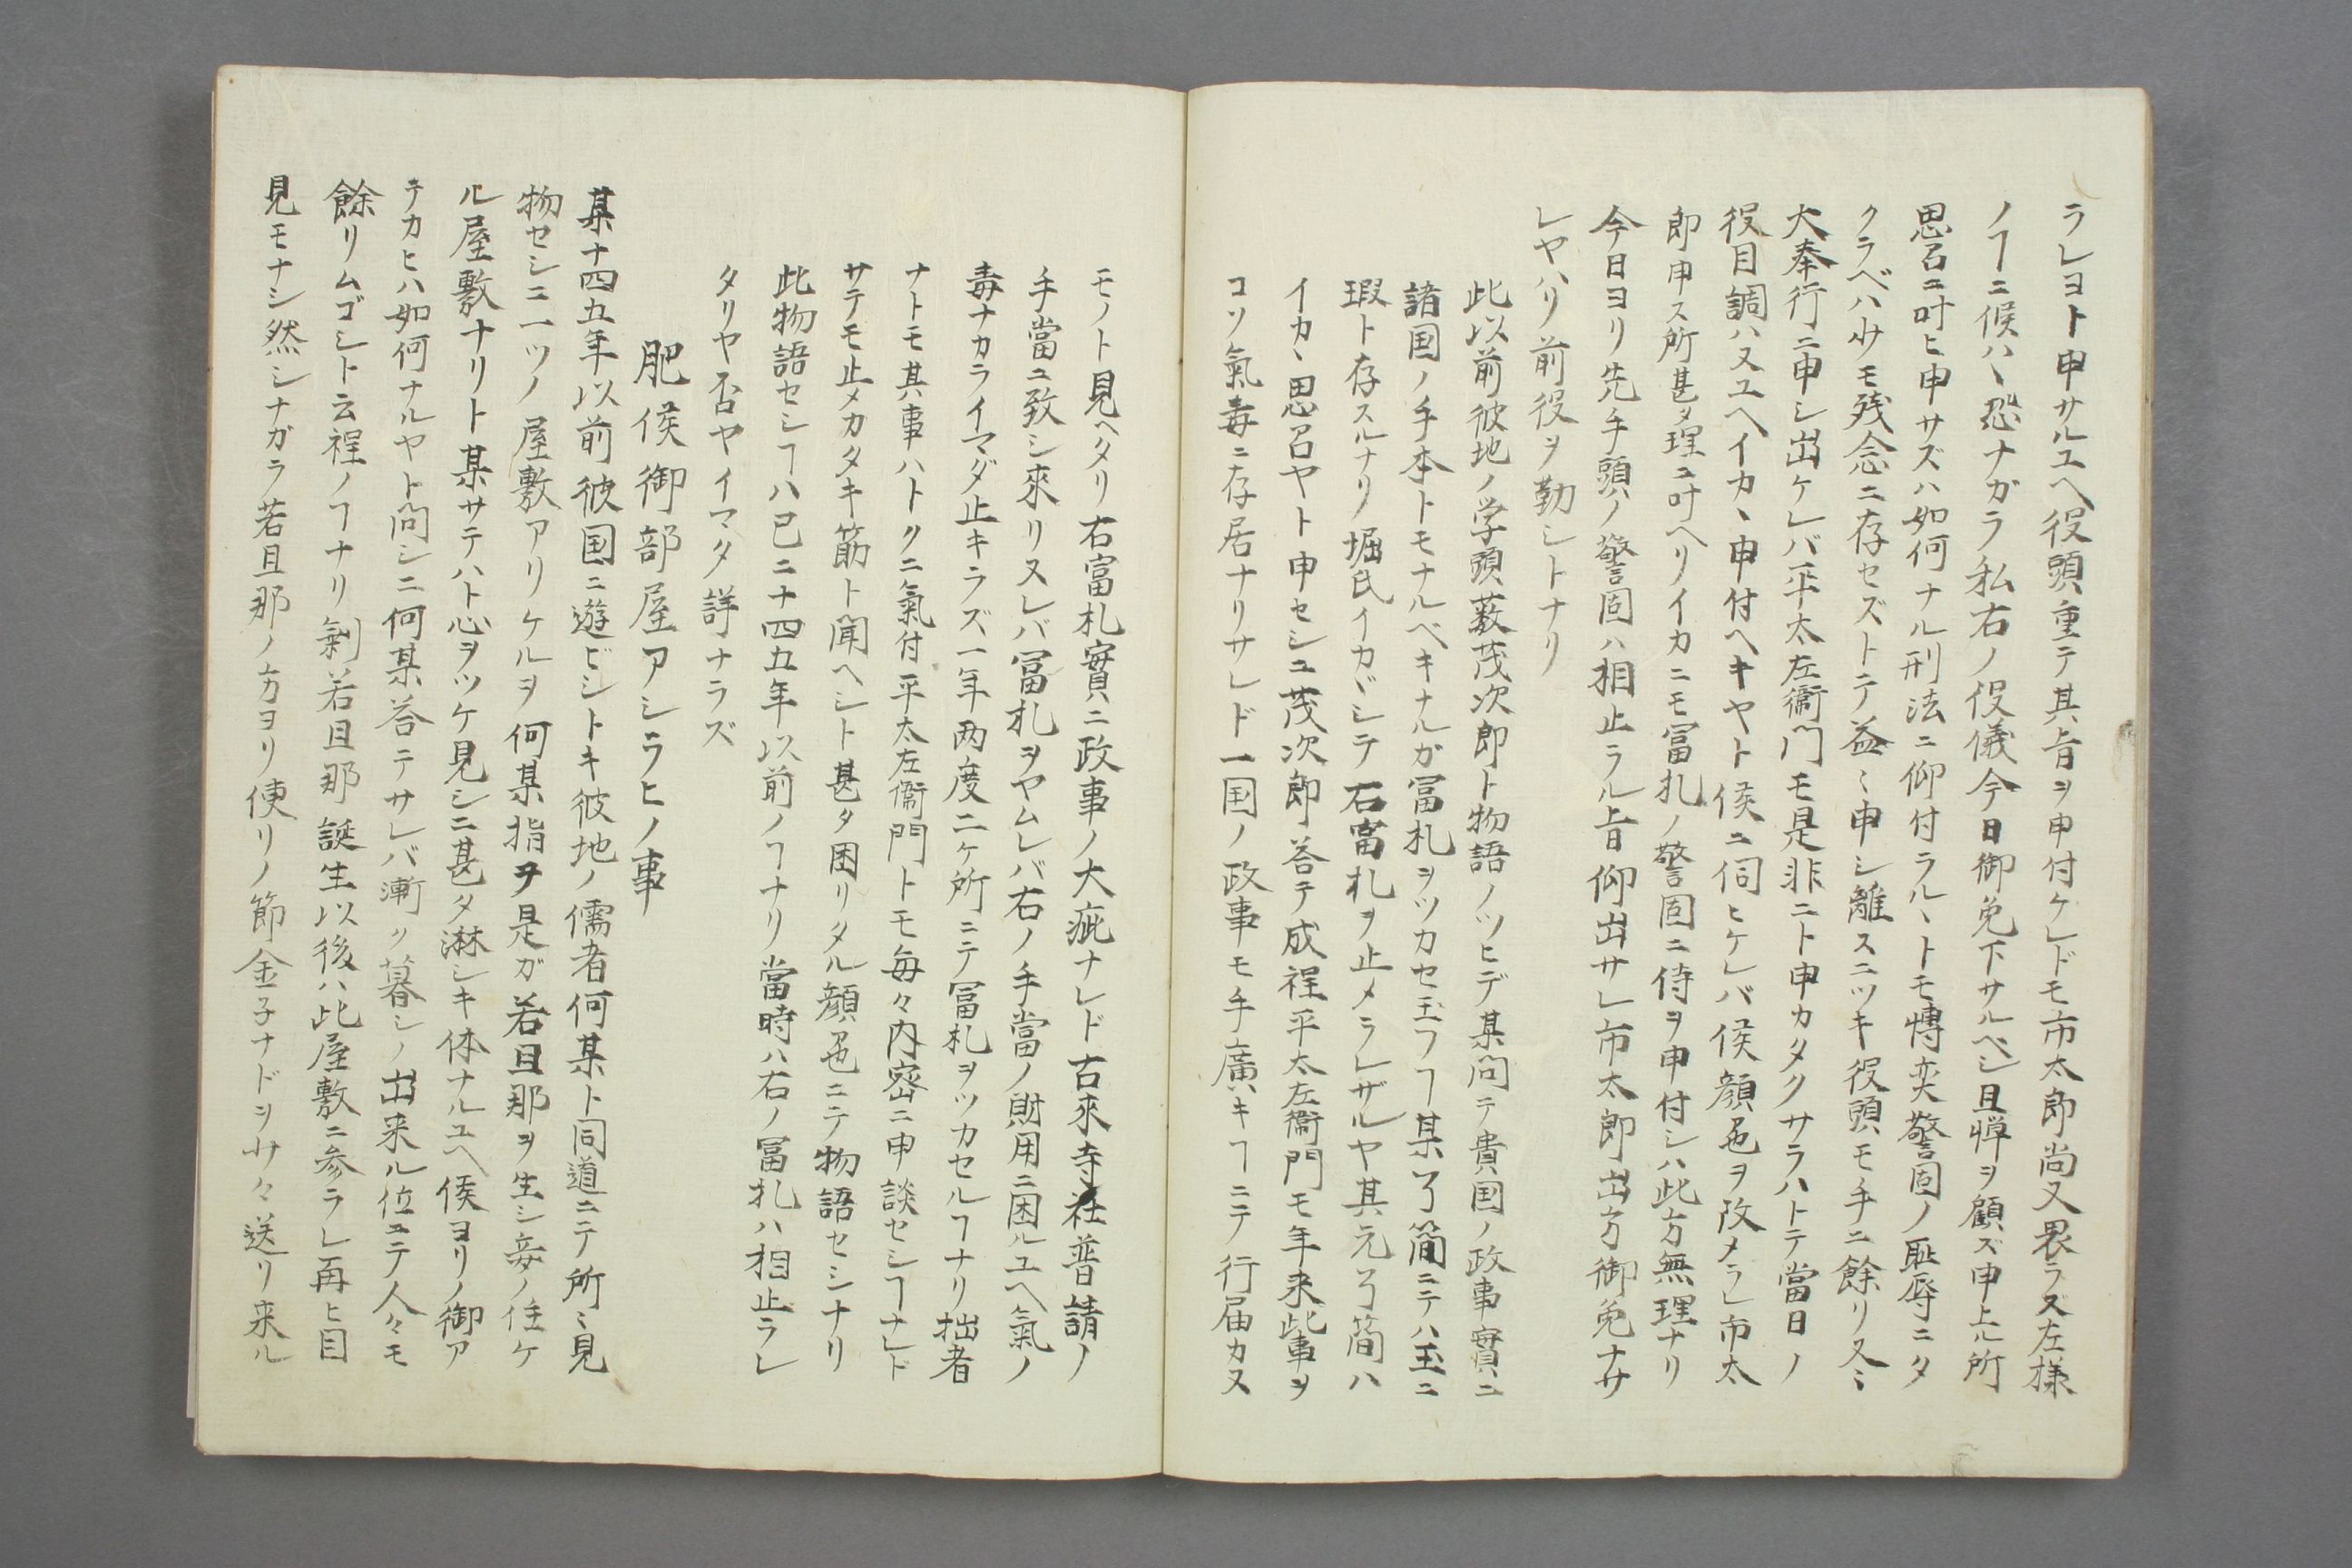 ラレヨト申サルユヘ役頭重テ其旨ヲ申付ケレドモ市太郎尚又畏ラズ左様
ノヿニ候ハヽ恐ナガラ私右ノ役儀今日御免下サルベシ且憚ヲ顧ズ申上ル所
思召ニ叶ヒ申サズハ如何ナル刑法ニ仰付ラルヽトモ博奕警固ノ耻辱ニタ
クラベハ少モ残念ニ存セズトテ益〻申シ離スニツキ役頭モ手ニ餘リ又〻
大奉行ニ申シ出ケレバ平太左衞門モ是非ニト申カタクサラハトテ當日ノ
役目調ハヌユヘイカヽ申付ヘキヤト侯ニ伺ヒケレバ侯顔色ヲ改メラレ市太
郎申ス所甚タ理ニ叶ヘリイカニモ冨札ノ警固ニ侍ヲ申付シハ此方無理ナリ
今日ヨリ先手頭ノ警固ハ相止ラル旨仰出サレ市太郎出方御免ナサ
レヤハリ前役ヲ勤シトナリ
此以前彼地ノ学頭薮茂次郎ト物語ノツヒデ某問テ貴国ノ政事實ニ
諸国ノ手本トモナルベキナルガ冨札ヲツカセ玉フヿ某了簡ニテハ玉ニ
瑕ト存スルナリ堀氏イカヾシテ右冨札ヲ止メラレザルヤ其元了簡ハ
イカヽ思召ヤト申セシニ茂次郎答テ成程平太左衞門モ年来此事ヲ
コソ氣毒ニ存居ナリサレド一国ノ政事モ手廣キヿニテ行届カヌ
モノト見ヘタリ右富札實ニ政事ノ大疵ナレド古來寺社普請ノ
手當ニ致シ來リヌレバ冨札ヲヤムレバ右ノ手當ノ財用ニ困ルユヘ氣ノ
毒ナカライマダ止キラズ一年両度二ケ所ニテ冨札ヲツカセルヿナリ拙者
ナトモ其事ハトクニ氣付平太左衞門トモ毎々内密ニ申談セシヿナレド
サテモ止メカタキ筋ト聞ヘシト甚タ困リタル顔色ニテ物語セシナリ
此物語セシヿハ已ニ十四五年以前ノヿナリ當時ハ右ノ冨札ハ相止ラレ
タリヤ否ヤイマタ詳ナラズ
肥侯御部屋アシラヒノ事
某十四五年以前彼国ニ遊ビシトキ彼地ノ儒者何某ト同道ニテ所〻見
物セシニ一ツノ屋敷アリケルヲ何某指ヲ是ガ若旦那ヲ生シ妾ノ住ケ
ル屋敷ナリト某サテハト心ヲツケ見シニ甚タ淋シキ体ナルユヘ侯ヨリノ御ア
テカヒハ如何ナルヤト問シニ何某答テサレバ漸ク暮シノ出来ル位ニテ人々モ
餘リムゴシト云程ノヿナリ剰若旦那誕生以後ハ此屋敷ニ参ラレ再ヒ目
見モナシ然シナガラ若旦那ノ方ヨリ使リノ節金子ナドヲ少々送リ来ル